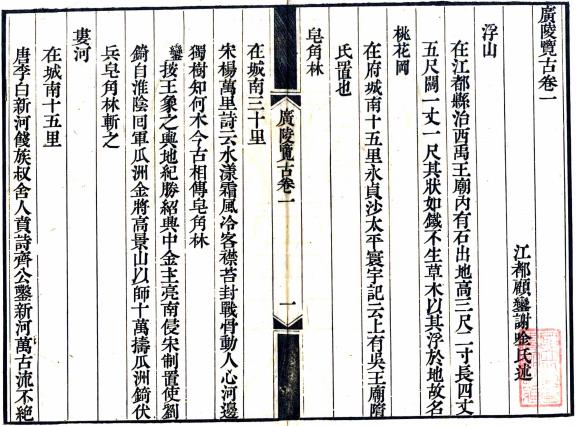 廣陵覽古卷一
江都顧鑾謝盦氏述
浮山
在江都縣治西禹王廟內有石出地高三尺二寸長四丈
五尺闊一丈一尺其狀如鐵不生草木以其浮於地故名
桃花岡
在府城南十五里永貞沙太平寰宇記云上有吳王廟隋
氏置也
皂角林
廣陵覽古卷一
一
在城南三十里
宋楊萬里詩云水漾霜風冷客襟苔封戰骨動人心河邊
獨樹知何木今古相傳皂角林
鑾按王象之輿地紀勝紹興中金主亮南侵宋制置使劉
錡自淮陰回軍瓜洲金將高景山以師十萬擣瓜洲錡伏
兵皂角林斬之
婁河
在城南十五里
唐李白新河餞族叔舍人賁詩齊公鑿新河萬古流不絕